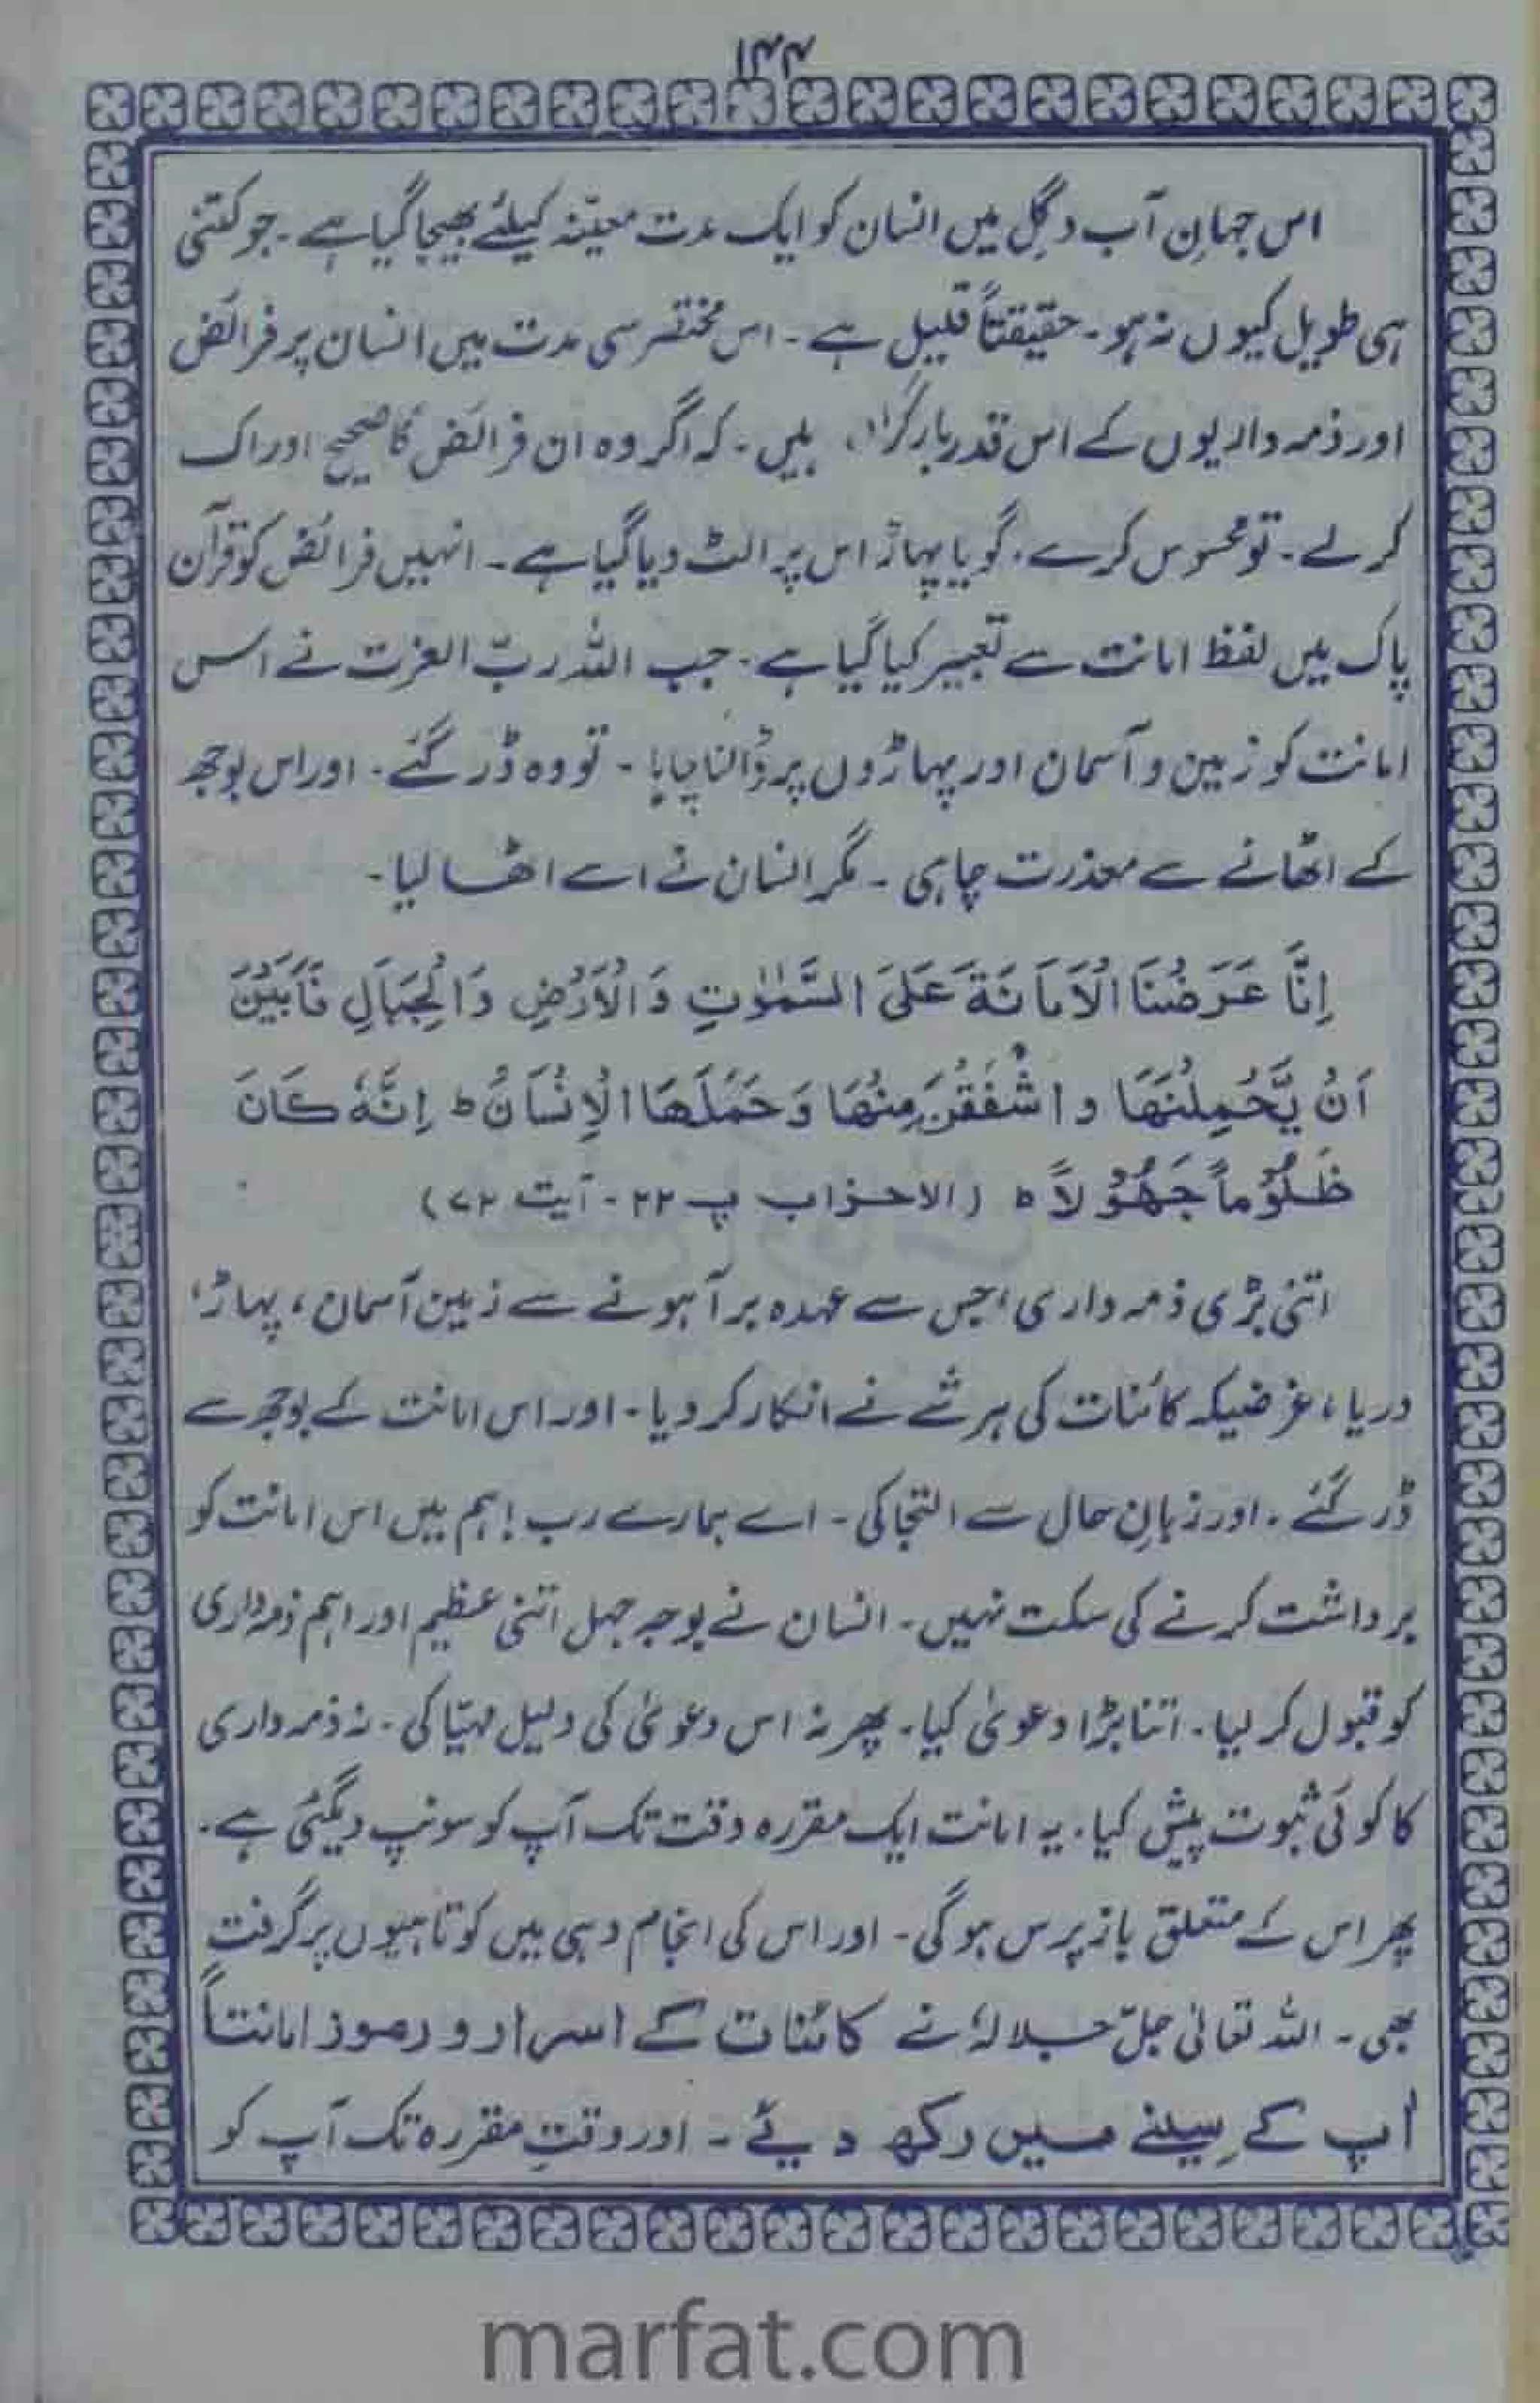 ۱۳۴
اس جہانِ آب و گِل میں انسان کو ایک مدت معیّنہ کیلئے بھیجا گیا ہے ۔ جو کتنی
ہی طویل کیوں نہ ہو ۔ حقیقتاً قلیل ہے ۔ اس مختصر سی مدت میں انسان پر فرائض
اور ذمہ داریوں کے اس قدر بارگراں ہیں ۔ کہ اگر وہ ان فرائض کا صحیح ادراک
کرلے ۔ تو محسوس کرے ، گویا پہاڑ اس پر الٹ دیا گیا ہے ۔ انہیں فرائض کو قرآن
پاک میں لفظ امانت سے تعبیر کیا گیا ہے ۔ جب اللہ ربّ العزت نے اس
امانت کو زمین و آسمان اور پہاڑوں پر ڈالنا چاہا ۔ تو وہ ڈر گئے ۔ اور اس بوجھ
کے اٹھانے سے معذرت چاہی ۔ مگر انسان نے اسے اٹھا لیا ۔
اِنَّا عَرَضْنَا الْاَمَانَةَ عَلَی السَّمٰوٰتِ وَالْاَرْضِ وَالْجِبَالِ فَاَبَیْنَ
اَنْ یَّحْمِلْنَهَا وَاشْفَقْنَ مِنْهَا وَحَمَلَهَا الْاِنْسَانُ ط اِنَّهٗ كَانَ
ظَلُوْمًا جَهُوْلًا ہ (الاحزاب پ ۲۲ - آیت ۷۲)
اتنی بڑی ذمہ داری ، جس سے عہدہ برآ ہونے سے زمین آسمان ، پہاڑ ،
دریا ، غرضیکہ کائنات کی ہر شے نے انکار کر دیا ۔ اور اس امانت کے بوجھ سے
ڈر گئے ۔ اور زبانِ حال سے التجا کی ۔ اے ہمارے رب ! ہم میں اس امانت کو
برداشت کرنے کی سکت نہیں ۔ انسان نے بوجہ جہل اتنی عظیم اور اہم ذمہ داری
کو قبول کر لیا ۔ اتنا بڑا دعویٰ کیا ۔ پھر نہ اس دعویٰ کی دلیل مہیّا کی ۔ نہ ذمہ داری
کا کوئی ثبوت پیش کیا ۔ یہ امانت ایک مقررہ وقت تک آپ کو سونپ دیگئی ہے ۔
پھر اس کے متعلق بازپرس ہوگی ۔ اور اس کی انجام دہی میں کوتاہیوں پر گرفت
بھی ۔ اللہ تعالیٰ جلّ جلالہٗ نے کائنات کے اسرار و رموز امانتاً
آپ کے سینے میں رکھ دیئے ۔ اور وقتِ مقررہ تک آپ کو
marfat.com